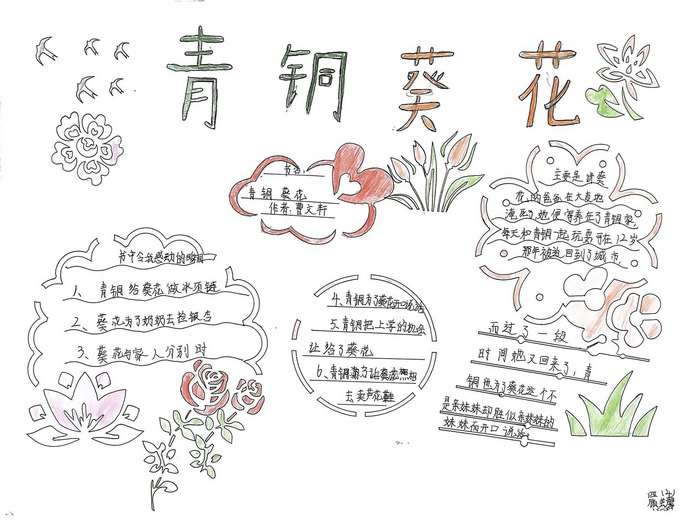 青铜葵花
书名:
青铜葵花
作者:曹文轩
主要是讲葵
花的爸爸在大麦地
淹死了她便寄养在了青铜家
每天和青铜一起玩耍可在12岁
那年被迫回到了城市
而过了一段
时间她又回来了,青
铜也为了葵花这个不
是亲妹妹却胜似亲妹妹的
妹妹而开口说话
书中令我感动的
1、青铜给葵花做冰项链
2、葵花为了奶奶去捡银杏
3、葵花与家人分别时
4、青铜为了葵花开口说话
5、青铜把上学的机会
让给了葵花
6、青铜为了让葵花照相
去卖芦花鞋